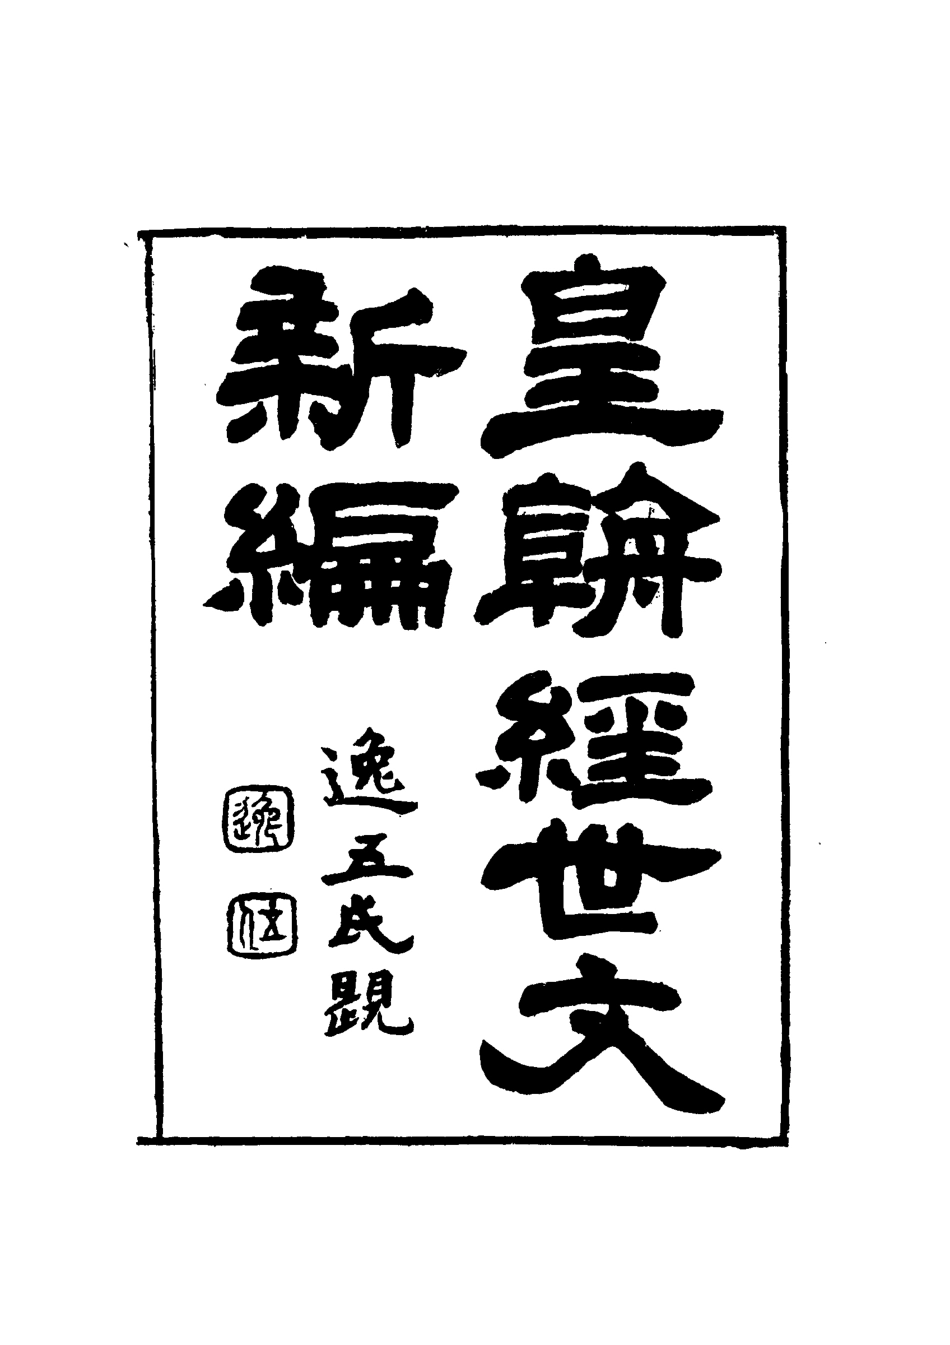 皇朝經世文
新編
逸五氏題
逸